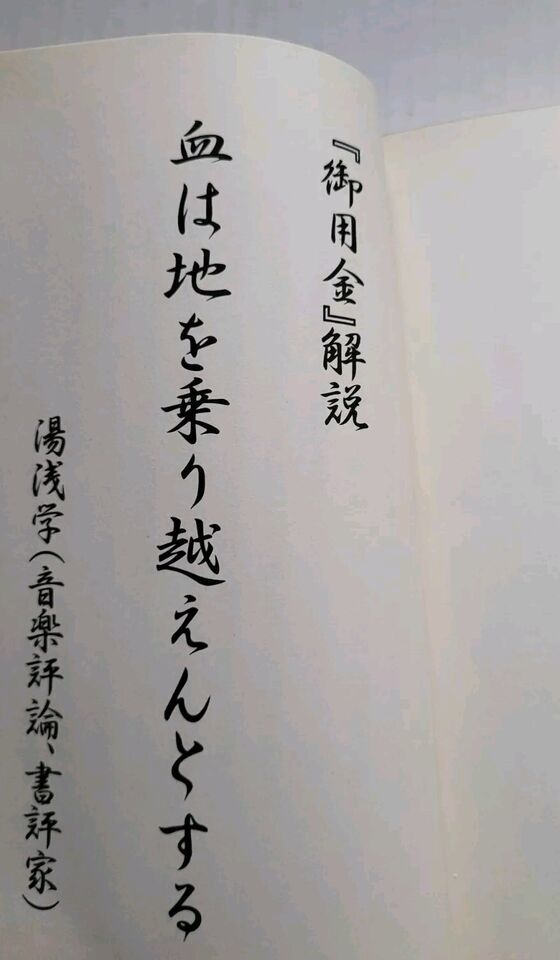 『御用金』解説
血は地を乗り越えんとする
湯浅学(音楽評論、書評家)